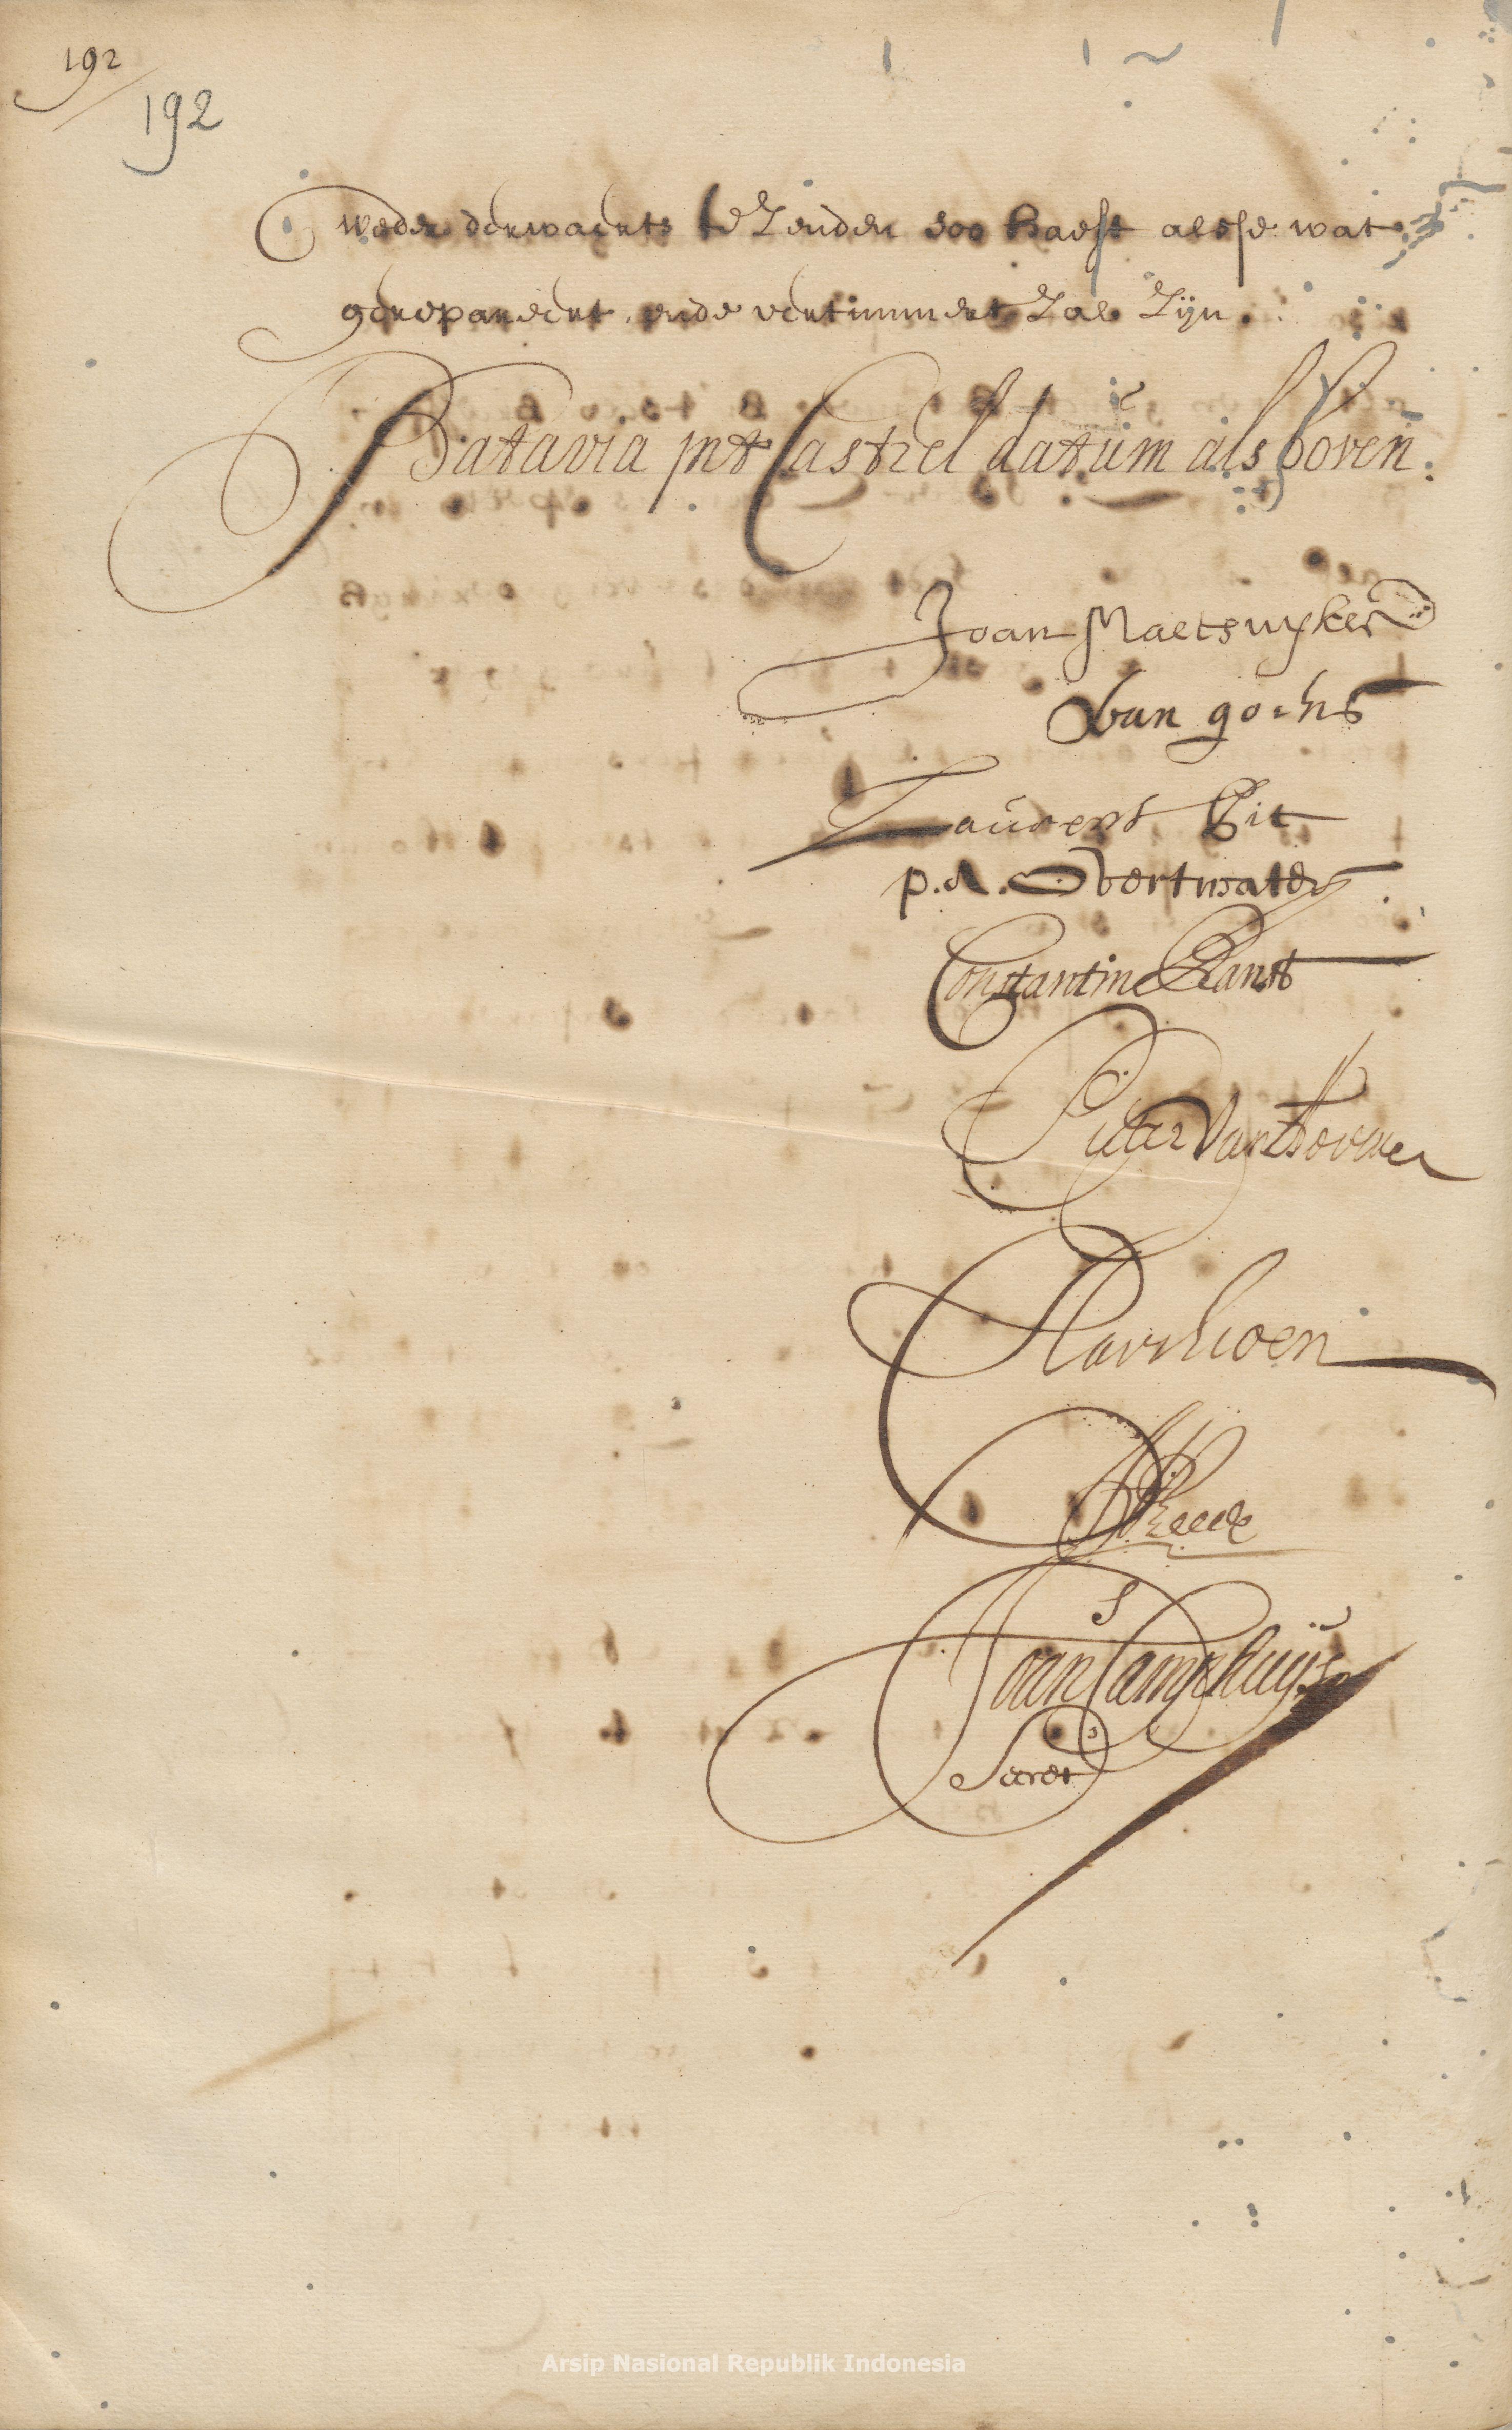 192
192
weder derwaerts te zenden soo haest alsse wat
gerepareert ende vertimmert zal zijn.
Batavia int Casteel datum als boven.
Joan Maetsuyker
van goens
Laurens Pit
p. A. Overtwater
Constantin Ranst
Pieter van Hoorn
AVReede
Joan Camphuijs
Secret.s
Arsip Nasional Republik Indonesia